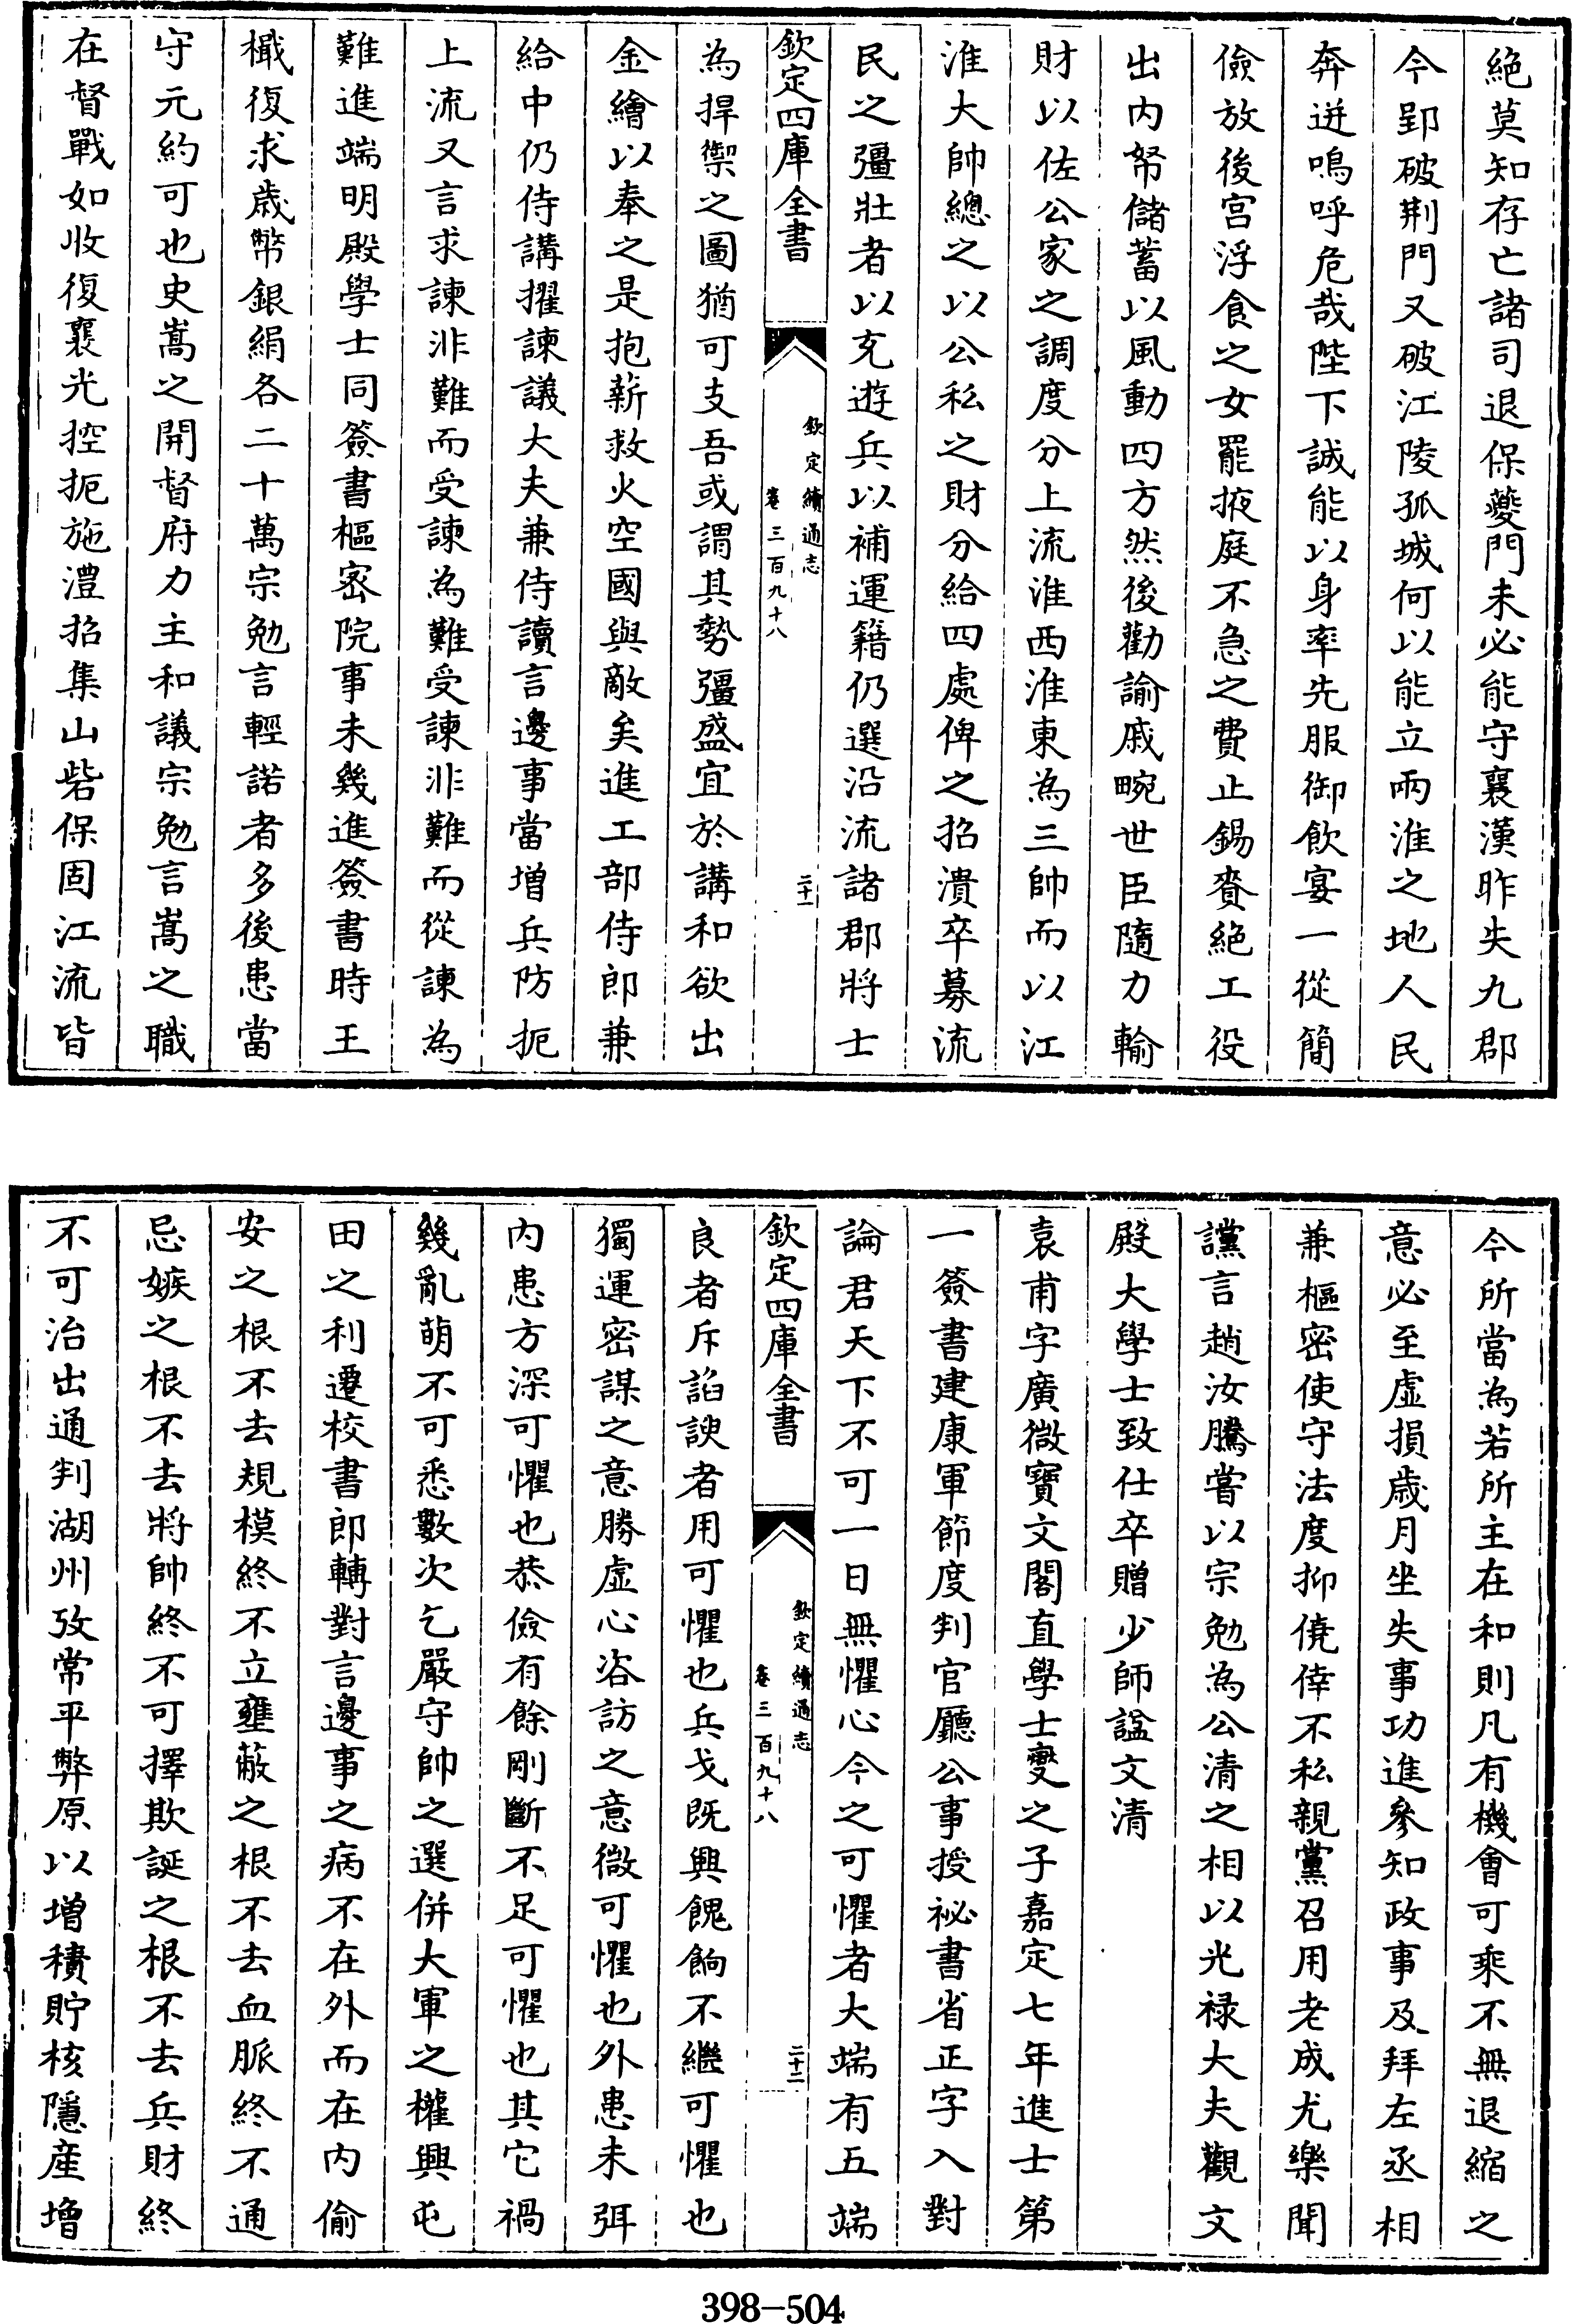 絶莫知存亡諸司退保夔門未必能守襄漢昨失九郡
今郢破荆門又破江陵孤城何以能立兩淮之地人民
奔迸鳴呼危哉陛下誠能以身率先服御飲宴一從簡
儉放後宫浮食之女罷掖庭不急之費止錫賚絶工役
出内帑儲蓄以風動四方然後勸諭戚畹世臣隨力輸
財以佐公家之調度分上流淮西淮東為三帥而以江
淮大帥總之以公私之財分給四處俾之招潰卒募流
民之彊壯者以充遊兵以補運籍仍選沿流諸郡將士
欽定四庫全書
欽定續通志
卷三百九十八
二十一
為捍禦之圖猶可支吾或謂其勢彊盛宜於講和欲出
金繒以奉之是抱薪救火空國與敵矣進工部侍郎兼
給中仍侍講擢諫議大夫兼侍讀言邊事當增兵防扼
上流又言求諫非難而受諫為難受諫非難而從諫為
難進端明殿學士同簽書樞宻院事未幾進簽書時王
檝復求歲幣銀絹各二十萬宗勉言輕諾者多後患當
守元約可也史嵩之開督府力主和議宗勉言嵩之職
在督戰如收復襄光控扼施澧招集山砦保固江流皆
今所當為若所主在和則凡有機會可乘不無退縮之
意必至虚損歲月坐失事功進參知政事及拜左丞相
兼樞密使守法度抑僥倖不私親黨召用老成尤樂聞
讜言趙汝騰嘗以宗勉為公清之相以光禄大夫觀文
殿大學士致仕卒贈少師諡文清
袁甫字廣微寶文閣直學士燮之子嘉定七年進士第
一簽書建康軍節度判官廳公事授祕書省正字入對
論君天下不可一日無懼心今之可懼者大端有五端
欽定四庫全書
欽定續通志
卷三百九十八
二十二
良者斥諂諛者用可懼也兵戈既興餽餉不繼可懼也
獨運密謀之意勝虚心咨訪之意微可懼也外患未弭
内患方深可懼也恭儉有餘剛斷不足可懼也其它禍
幾亂萌不可悉數次乞嚴守帥之選併大軍之權興屯
田之利遷校書郎轉對言邊事之病不在外而在内偷
安之根不去規模終不立壅蔽之根不去血脈終不通
忌嫉之根不去將帥終不可擇欺誕之根不去兵財終
不可治出通判湖州攷常平弊原以增積貯核隱産增
398-504